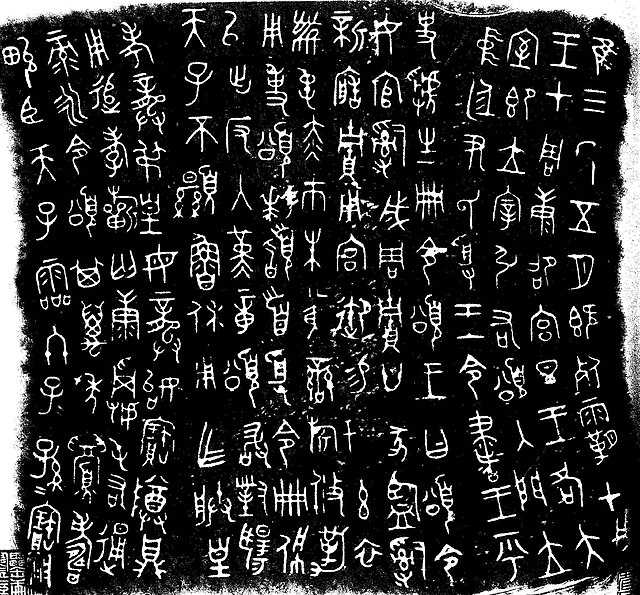 隹三年五月既死霸甲戌
王才周康卲宮旦王各大
室即立宰引右頌入門立
中廷尹氏受王令書王乎
史虢生冊令頌王曰頌令
女官𤔲成周貯廿家監𤔲
新造貯用宮御易女玄衣
黹屯赤巿朱黃鑾旂攸勒
用事頌拜稽首受令冊佩
以出反入堇章頌敢對揚
天子不顯魯休用乍朕皇
考龏叔皇母龏始寶尊鼎
用追孝祈匄康𤲞屯右通
彔永令頌其萬年眉壽
畯臣天子霝冬子子孫孫寶用